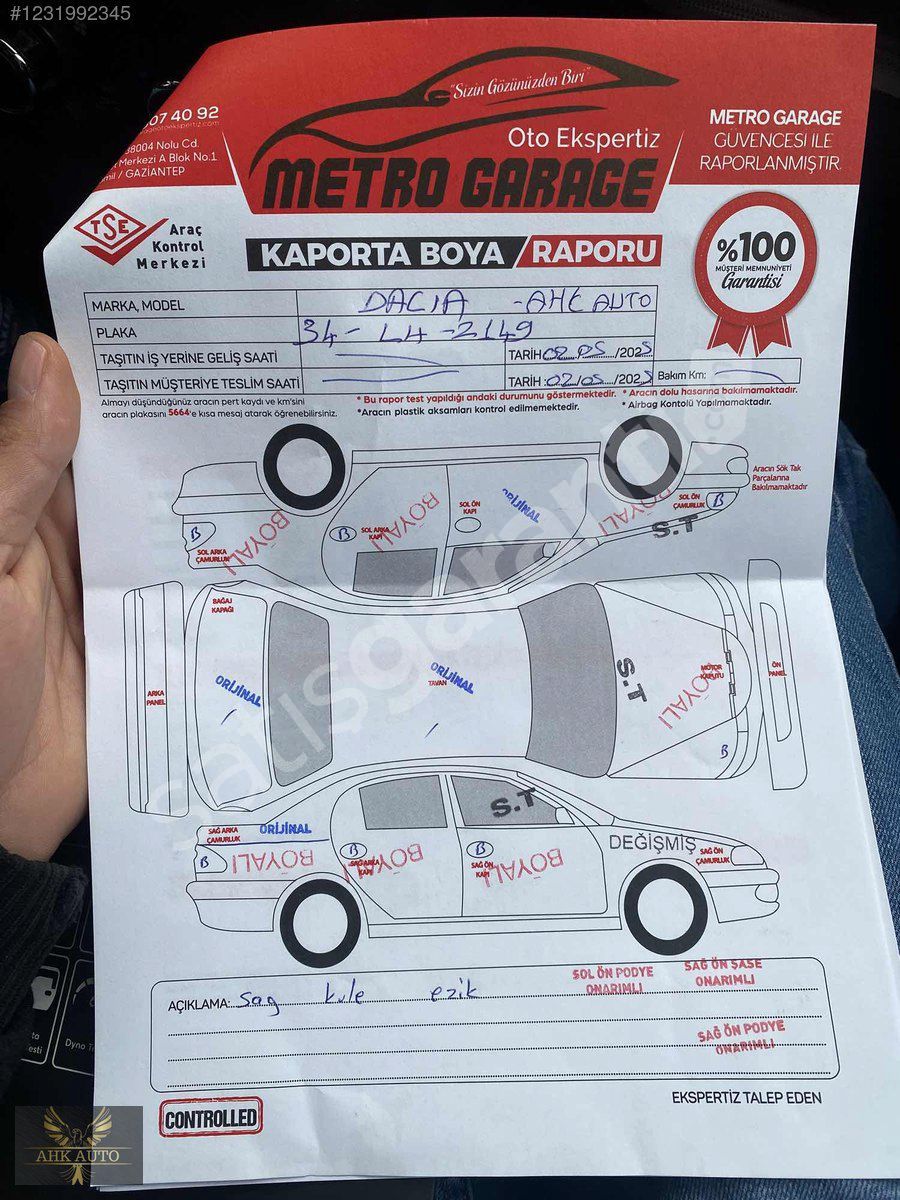 #1231992345
"Sizin Gözünüzden Biri"
Oto Ekspertiz
METRO GARAGE
07 40 92
38004 Nolu Cd.
Merkezi A Blok No.1
/ GAZİANTEP
METRO GARAGE
GÜVENCESİ İLE
RAPORLANMIŞTIR.
TSE
Araç
Kontrol
Merkezi
KAPORTA BOYA RAPORU
%100
MÜŞTERİ MEMNUNİYETİ
Garantisi
MARKA, MODEL DACIA - AHK AUTO
PLAKA 34 - LH - 2149
TAŞITIN İŞ YERİNE GELİŞ SAATİ TARİH: 02/05/2025
TAŞITIN MÜŞTERİYE TESLİM SAATİ TARİH: 02/05/2025 Bakım Km:
Almayı düşündüğünüz aracın pert kaydı ve km'sini
aracın plakasını 5664'e kısa mesaj atarak öğrenebilirsiniz.
* Bu rapor test yapıldığı andaki durumunu göstermektedir. * Aracın dolu hasarına bakılmamaktadır.
*Aracın plastik aksamları kontrol edilmemektedir. * Airbag Kontolü Yapılmamaktadır.
Aracın Sök Tak
Parçalarına
Bakılmamaktadır
B
SOL ARKA
ÇAMURLUK
BOYALI
B
SOL ARKA
KAPI
BOYALI
SOL ÖN
KAPI
ORİJİNAL
SOL ÖN
ÇAMURLUK
B
BOYALI
S.T
ARKA
PANEL
BAGAJ
KAPAĞI
ORİJİNAL
ORİJİNAL
TAVAN
S.T
MOTOR
KAPUTU
BOYALI
B
ÖN
PANEL
satışgaranti
SAĞ ARKA
ÇAMURLUK
ORİJİNAL
B
BOYALI
BOYALI
B
SAĞ ARKA
KAPI
BOYALI
S.T
B
SAĞ ÖN
KAPI
BOYALI
DEĞİŞMİŞ
SAĞ ÖN
ÇAMURLUK
AÇIKLAMA: sag kule ezik
SOL ÖN PODYE
ONARIMLI
SAĞ ÖN ŞASE
ONARIMLI
SAĞ ÖN PODYE
ONARIMLI
EKSPERTİZ TALEP EDEN
CONTROLLED
AHK AUTO